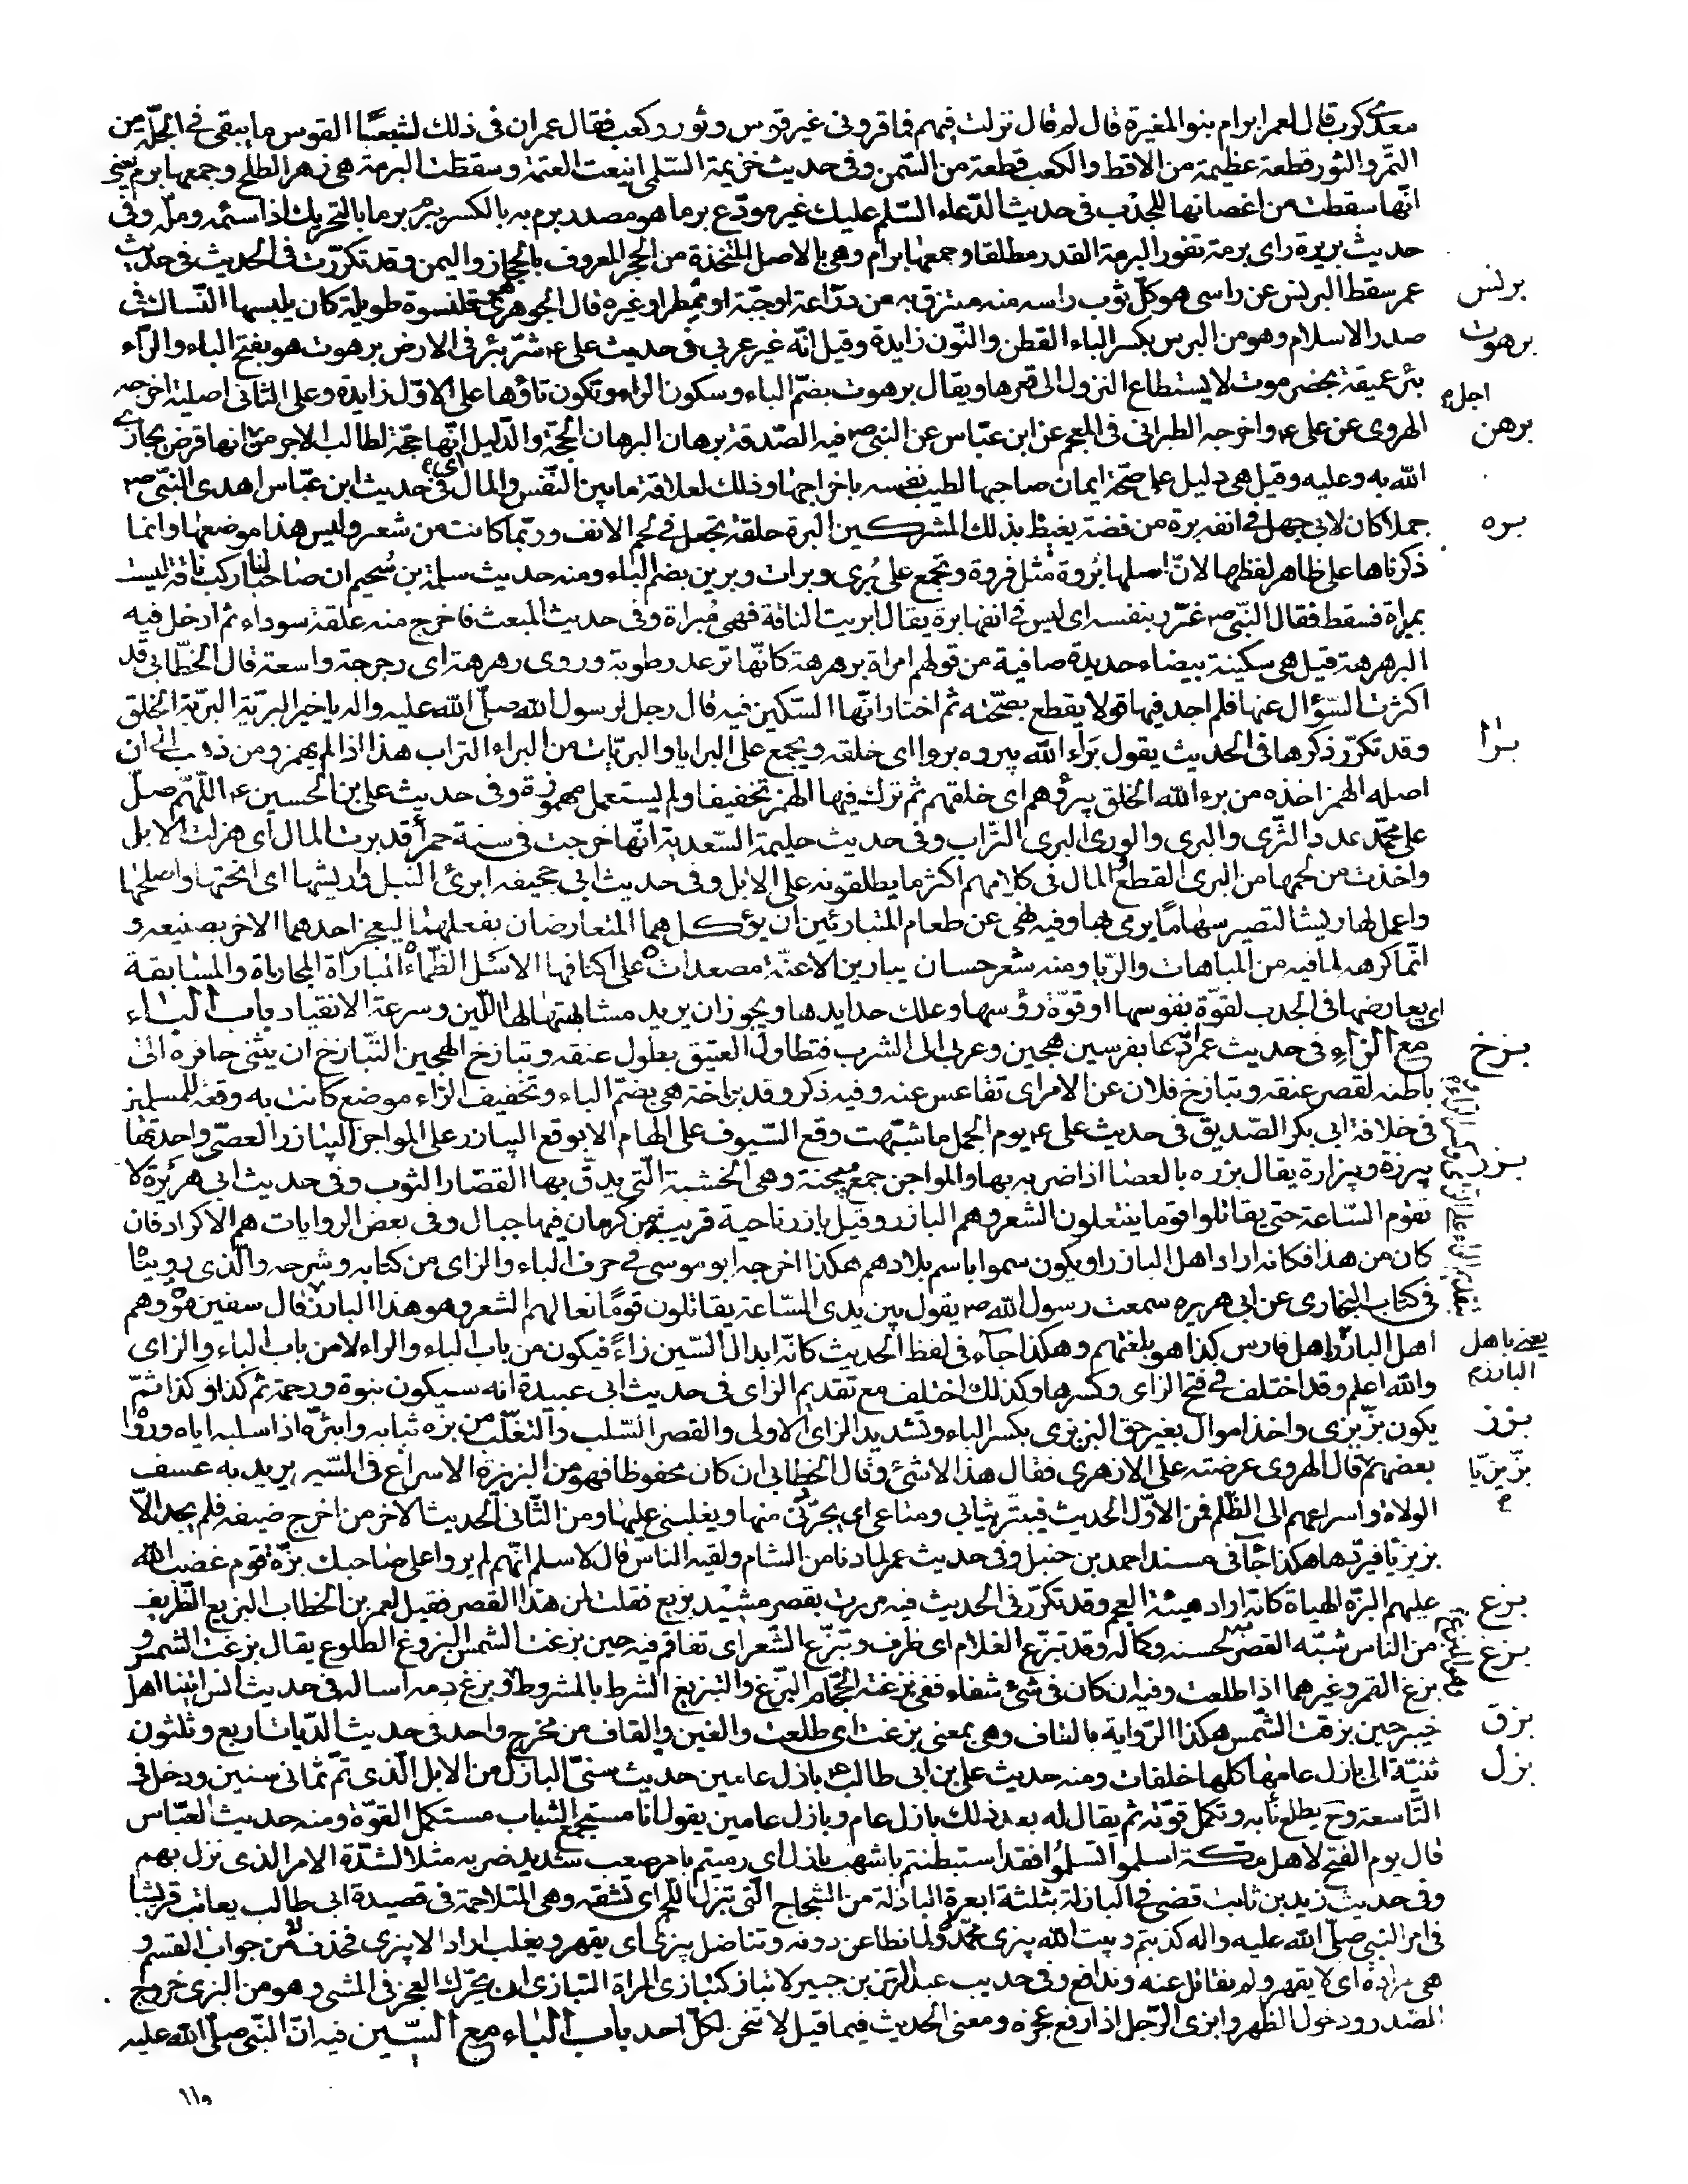 معدي كرب قال لعمر ابرام بنو المغيرة قال لم قال نزلت فيهم فما قروني غير قوس وثور وكعب فقال عمر ان في ذلك لشبعًا القوس ما يبقى في الجلّة من
التمر والثور قطعة عظيمة من الاقط والكعب قطعة من السّمن وفي حديث خزيمة السّلمي اينعت العنمة وسقطت البرمة هي زهر الطلح وجمعها برم يعني
انّها سقطت من اغصانها للجدب في حديث الدّعاء السّلم عليك غير مودّع برما هو مصدر برم به بالكسر يبرم برما بالتحريك اذا سئمه وملّه وفي
حديث بريرة راى برمة تفور البرمة القدر مطلقا وجمعها برام وهي بالاصل المتّخذة من الحجر المعروف بالحجاز واليمن وقد تكرّرت في الحديث في حديث
برنس
عمر سقط البرنس عن راسي هو كلّ ثوب راسه منه ملتزق به من درّاعة او جبّة او ممطر او غيره قال الجوهري هو قلنسوة طويلة كان يلبسها النّساك في
برهوت
صدر الاسلام وهو من البرس بكسر الباء القطن والنّون زايدة وقيل انّه غير عربي في حديث علي ع شرّ بئر في الارض برهوت هو بفتح الباء والرّاء
بئر عميقة بحضرموت لا يستطاع النزول الى قعرها ويقال برهوت بضمّ الباء وسكون الراء وتكون تاؤها على الاوّل زايدة وعلى الثاني اصلية اخرجه
اجل م
برهن
الهروي عن علي ع واخرجه الطبراني في المعجم عن ابن عبّاس عن النبي ص فيه الصّدقة برهان البرهان الحجّة والدّليل انّها حجّة لطالب الاجر من انها فرض يجازي
الله به وعليه وقيل هي دليل على صحّة ايمان صاحبها لطيب نفسه باخراجها وذلك لعلاقة ما بين النّفس والمال في حديث ابن عبّاس اهدى النبّي ص
بره
جملا كان لابي جهل في انفه برة من فضة يغيظ بذلك المشركين البرة حلقة تجعل في لحم الانف وربّما كانت من شعر وليس هذا موضعها وانما
ذكرناها على ظاهر لفظها لانّ اصلها بروة مثل فروة وتجمع على بُرى وبرات وبرين بضم الباء ومنه حديث سلمة بن سُحيم ان صاحبا لنا ركب ناقة ليست
بمبراة فسقط فقال النّبي ص غرّر بنفسه اي ليس في انفها برة يقال ابريت الناقة فهي مُبراة وفي حديث المبعث فاخرج منه علقة سوداء ثم ادخل فيه
البرهرهة قيل هي سكينة بيضاء حديدة صافية من قولهم امراة برهرهة كانّها ترعد رطوبة وروى رهرهة اي رحرحة واسعة قال الخطّابي قد
اكثرت السّؤال عنها فلم اجد فيها قولا يقطع بصحّته ثم اختار انّها السّكين فيه قال رجل لرسول الله صلّى الله عليه واله يا خير البريّة البريّة الخلق
برا
وقد تكرّر ذكرها في الحديث يقول بَراه الله يبروه بروا اي خلقه ويجمع على البرايا والبريّات من البراء التراب هذا اذا لم يهمز ومن ذهب الى ان
اصله الهمز اخذه من برء الله الخلق يبرؤهم اي خلقهم ثم ترك فيها الهمز تخفيفا ولم يستعمل مهموزة وفي حديث علي بن الحسين ع اللّهمّ صلّ
على محمّد عدد الثّرى والبرى والورى البرى التّراب وفي حديث حليمة السّعدية انّها خرجت في سنة حمراء قد برت المال اي هزلت الابل
واخذت من لحمها من البرى القطع والمال في كلامهم اكثر ما يطلقونه على الابل وفي حديث ابي جحيفه ابرئ النبل واريشها اي انحتها واصلحها
واعمل لها ريشا لتصير سهامًا يرمى بها وفيه نهى عن طعام المتبارئين ان يؤكل هما المتعارضان بفعلهما ليعجز احدهما الاخر بصنيعه و
انّما كرهه لما فيه من المباهات والرّيا ومنه شعر حسان يبارين الاعنّة مصعدات على اكتافها الاسل الظماء المباراة المجاراة والمسابقة
اي يعارضها في الجدب لقوّة نفوسها او قوّة رؤسها وعلك حدايدها ويجوز ان يريد مشابهتها لها اللّين وسرعة الانقياد باب الباء
بزخ
مع الزاء في حديث عمر انّه دعا بفرسين هجين وعربي الى الشرب فتطاول العتيق بطول عنقه وتبازخ الهجين التّبازخ ان يثنى حافره الى
باطنه لقصر عنقه وتبازخ فلان عن الامر اي تقاعس عنه وفيه ذكر وفد بزاخة هي بضمّ الباء وتخفيف الزاء موضع كانت به وقعة للمسلمين
في خلافة ابي بكر الصّديق في حديث علي ع يوم الجمل ما شبّهت وقع السّيوف على الهام الا بوقع البيازر على المواجن البيازر العصي واحدتها
بزر
بيزرة وبيزارة يقال بزره بالعصا اذا ضربه بها والمواجن جمع ميجنة وهي الخشبة الّتي يدقّ بها القصّار الثوب وفي حديث ابي هريرة لا
تقوم السّاعة حتى يقاتلوا قوما ينتعلون الشعر وهم البازر وقيل بازر ناحية قريبة من كرمان فيها جبال وفي بعض الروايات هم الاكراد فان
كان من هذا فكانه اراد اهل البازر او يكون سموا باسم بلادهم هكذا اخرجه ابو موسى في حرف الباء والزاي من كتابه وشرحه والّذي روينا
في كتاب البخاري عن ابي هريره سمعت رسول الله ص يقول بين يدي السّاعة يقاتلون قومًا نعالهم الشعر وهو هذا البارز قال سفين مرّة وهم
يعني باهل البارز م
اهل البارز اهل فارس كذا هو بلغتهم وهكذا جاء في لفظ الحديث كانّه ابدال السّين زاءً فيكون من باب الباء والراء لا من باب الباء والزاي
والله اعلم وقد اختلف في فتح الزاي وكسرها وكذلك اختلف مع تقديم الزاي في حديث ابي عبيدة انه سيكون نبوة ورحمة ثم كذا وكذا ثمّ
بزز
يكون بزّيزى واخذ اموال بغير حق البزيزى بكسر الباء وتشديد الزاي الاولى والقصر السّلب والتّغلّب من بزّه ثيابه وابتزّه اذا سلبه اياه ورواه
بزّيزيّا م
بعضهم قال الهروي عرضته على الازهري فقال هذا لا شئ وقال الخطابي ان كان محفوظا فهو من البزبزة الاسراع في السّير يريد به عسف
الولاة واسراعهم الى الظّلم فمن الاوّل الحديث فيبتزّ ثيابي ومتاعي اي يجرّدني منها ويغلبني عليها ومن الثّاني الحديث الاخر من اخرج ضيفه فلم يجد الّا
بزبزيّا فيردّها هكذا جاء في مسند احمد بن حنبل وفي حديث عمر لما دنا من الشام ولقيه الناس قال لاسلم انّهم لم يروا على صاحبك بزّة قوم غضب الله
بزع
عليهم البزّة الهياة كانّه اراد هيئة العجم وقد تكرّر في الحديث فيه مررت بقصر مشيد بزيع فقلت لمن هذا القصر فقيل لعمر بن الخطاب البزيع الظّريف
بزغ
من الناس شبّه القصر به لحسنه وكماله وقد تبزّع الغلام اي ظرف وتبزّع الشّعر اي تفاقم فيه حين بزغت الشمس البزوغ الطلوع يقال بزغت الشمس و
بزغ القمر وغيرهما اذا طلعت وفيه ان كان في شئ شفاء ففي بزغة الحجّام البزغ والتبزيغ الشرط بالمشروط وبزغ دمه اساله في حديث انس اتينا اهل
بزق
خيبر حين بزقت الشّمس هكذا الرّواية بالقاف وهي بمعنى بزغت اي طلعت والغين والقاف من مخرج واحد في حديث الدّيات اربع وثلثون
بزل
ثنيّة الى بازل عامها كلها خلفات ومنه حديث علي بن ابي طالب ع بازل عامين حديث سنّي البازل من الابل الّذي تمّ ثماني سنين ودخل في
التّاسعة وح يطلع نابه وتكمل قوّته ثم يقال له بعد ذلك بازل عام وبازل عامين يقول انا مستجمع الشباب مستكمل القوّة ومنه حديث العبّاس
قال يوم الفتح لاهل مكّة اسلموا تسلموا فقد استبطنتم باشهب بازل اي رميتم بامر صعب شديد ضربه مثلا لشدّة الامر الذي نزل بهم
وفي حديث زيد بن ثابت قضى في البازلة بثلثة ابعرة البازلة من الشجاج الّتي تبزل اللّحم اي تشقه وهي المتلاحمة في قصيدة ابي طالب يعاتب قريشا
في امر النبي صلّى الله عليه واله كذبتم وبيت الله يبزى محمّد ولما نطاعن دونه ونناضل يبزى اي يقهر ويغلب اراد لا يبزى فحذف لا من جواب القسم و
هي مرادة اي لا يقهر ولم نقاتل عنه وندافع وفي حديث عبد الرحمن بن جبير لا تباز كتبازي المراة التبازي ان يحرّك العجز في المشي وهو من البزى خروج
الصّدر ودخول الظهر وابزى الرّجل اذا رفع عجزه ومعنى الحديث فيما قيل لا تنحن لكلّ احد باب الباء مع السّين فيه انّ النبّي صلّى الله عليه